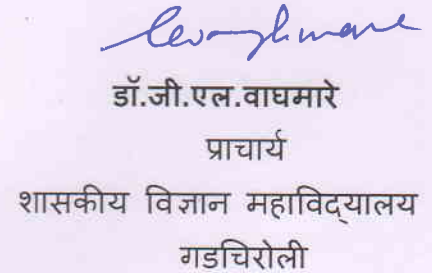 डॉ.जी.एल.वाघमारे
प्राचार्य
शासकीय विज्ञान महाविद्यालय
गडचिरोली